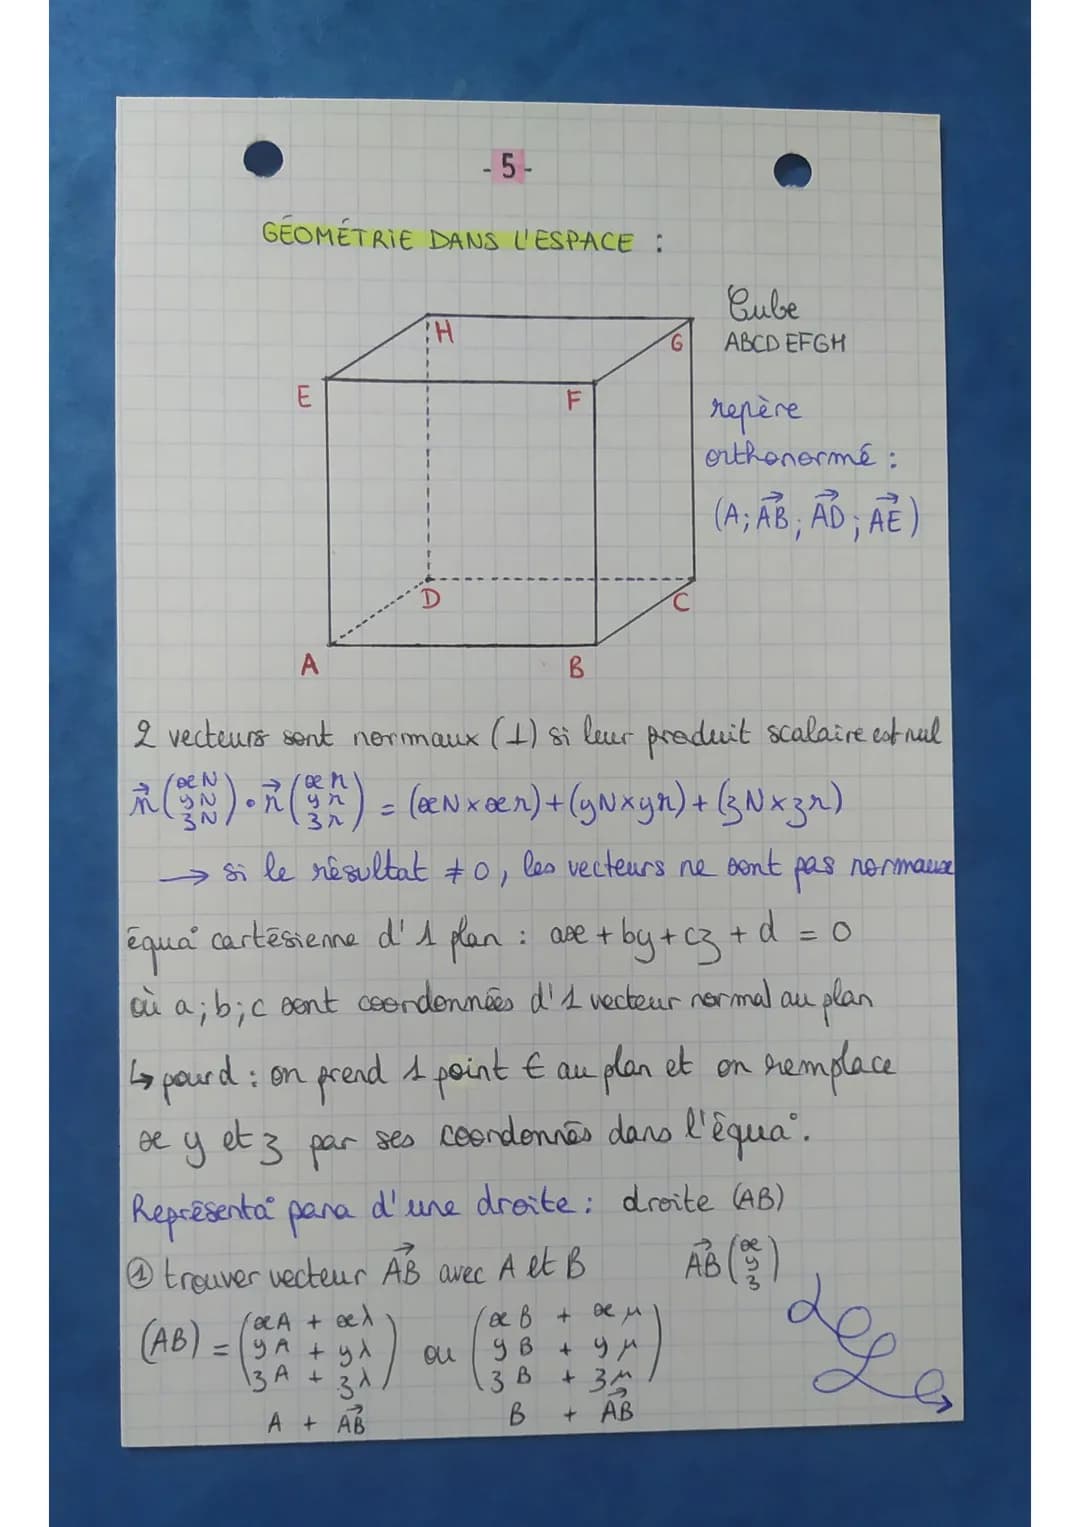 - 5 -
GÉOMÉTRIE DANS L'ESPACE :
Cube
ABCD EFGH
repère
orthonormé :
(A; AB→; AD→; AE→)
H
G
E
F
D
C
A
B
2 vecteurs sont normaux (⊥) si leur produit scalaire est nul
n→ (xN yN zN) • n→ (xn yn zn) = (xN × xn) + (yN × yn) + (zN × zn)
→ si le résultat ≠ 0, les vecteurs ne sont pas normaux
équa° cartésienne d'1 plan : ax + by + cz + d = 0
où a; b; c sont coordonnées d'1 vecteur normal au plan
↳ pour d : on prend 1 point ∈ au plan et on remplace
x y et z par ses coordonnés dans l'équa°.
Représenta° para d'une droite : droite (AB)
① trouver vecteur AB→ avec A et B AB→ (x y z)
(AB) = (xA + xλ yA + yλ zA + zλ) ou (xB + xμ yB + yμ zB + zμ)
A + AB→ B + AB→